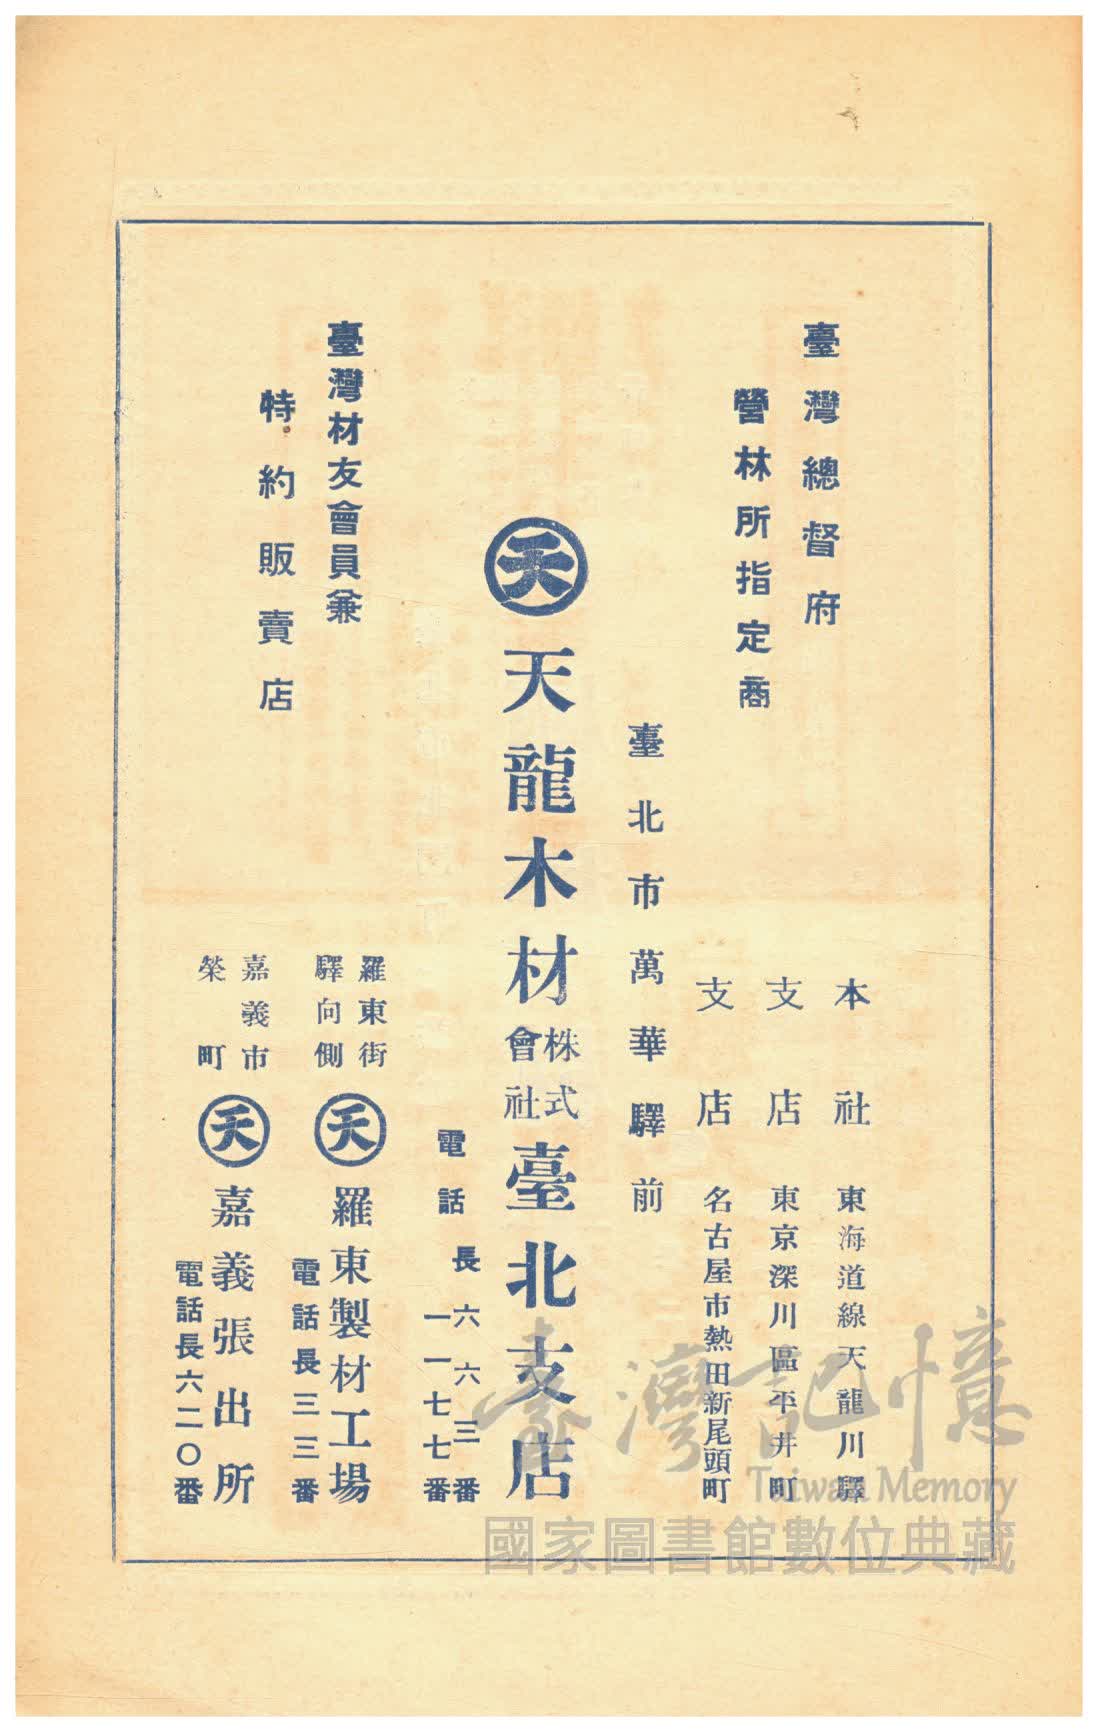 臺灣總督府
營林所指定商
本社 東海道線天龍川驛
支店 東京深川區平井町
支店 名古屋市熱田新尾頭町
臺北市萬華驛前
天 天龍木材株式會社臺北支店
電話長六六三番
一一七七番
臺灣材友會員兼
特約販賣店
羅東街
驛向側
天 羅東製材工場
電話長三三番
嘉義市
榮町
天 嘉義張出所
電話長六二〇番
臺灣記憶
Taiwan Memory
國家圖書館數位典藏